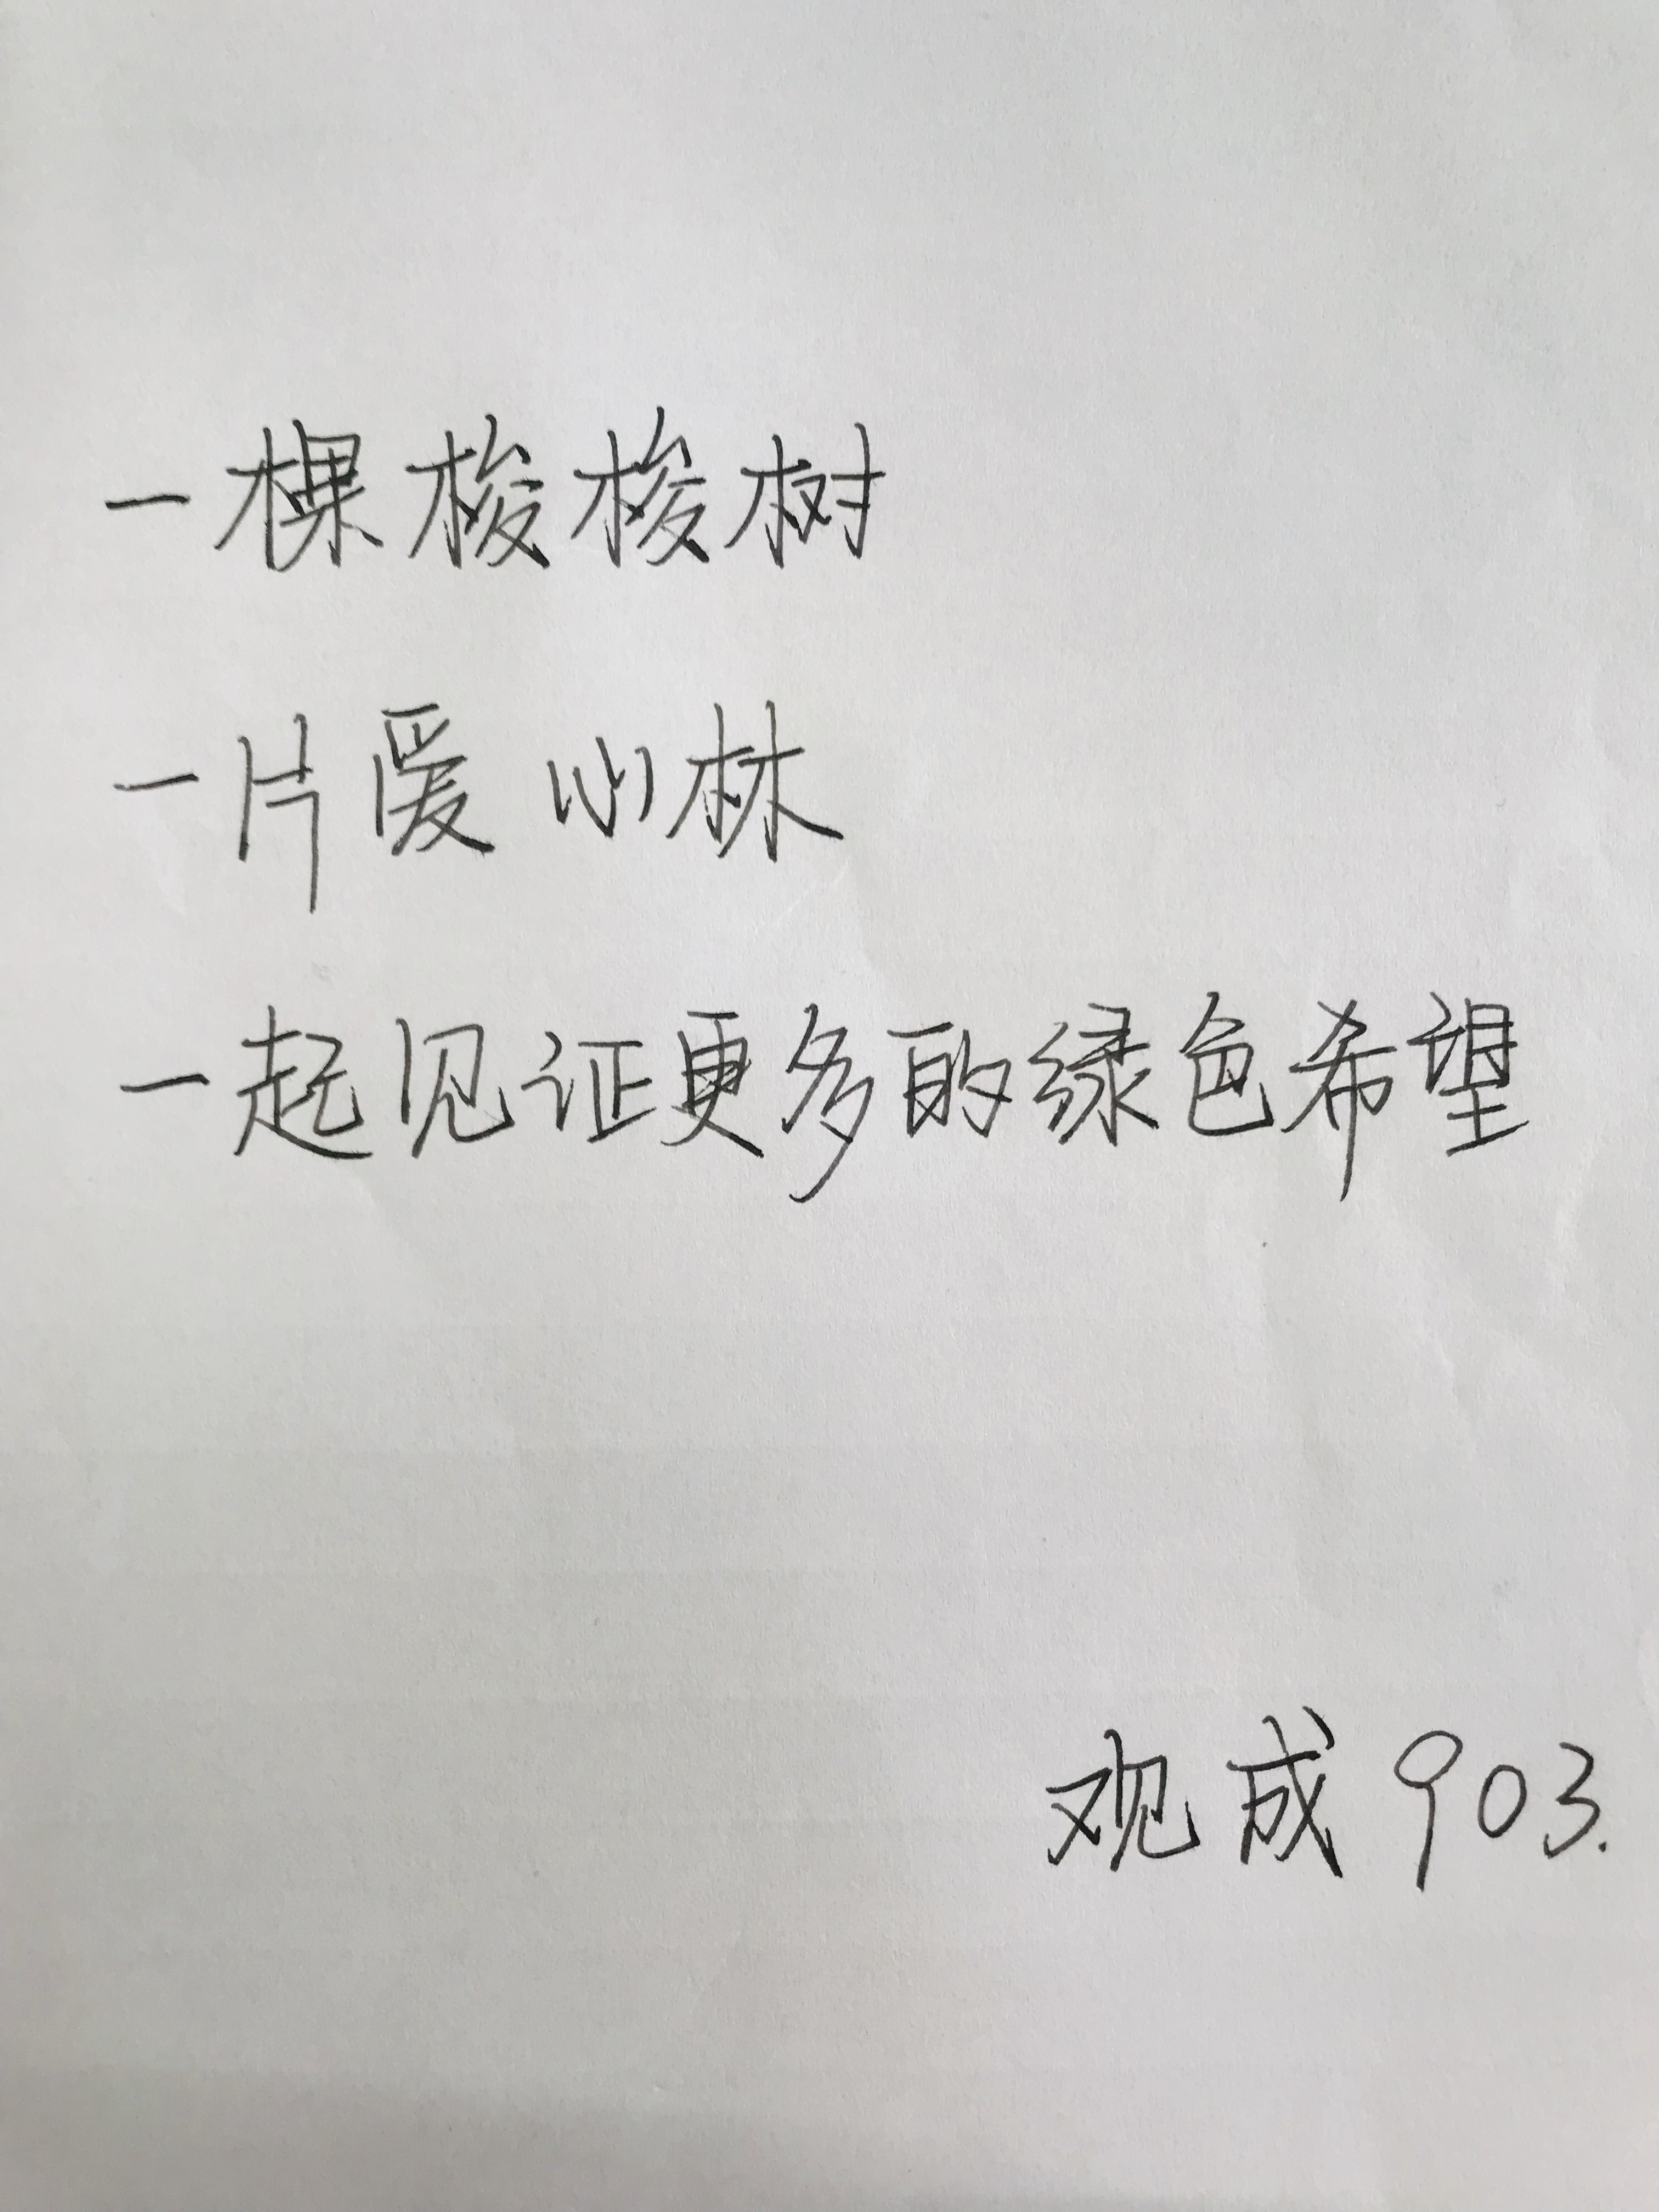 一棵梭梭树
一片爱心林
一起见证更多的绿色希望
观成903.